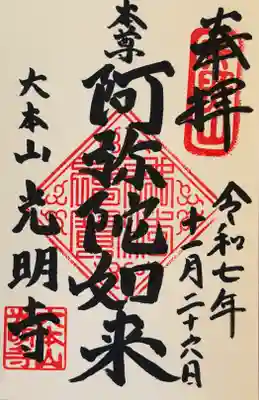 奉拝
令和七年
十一月二十六日
本尊
阿弥陀如来
大本山光明寺